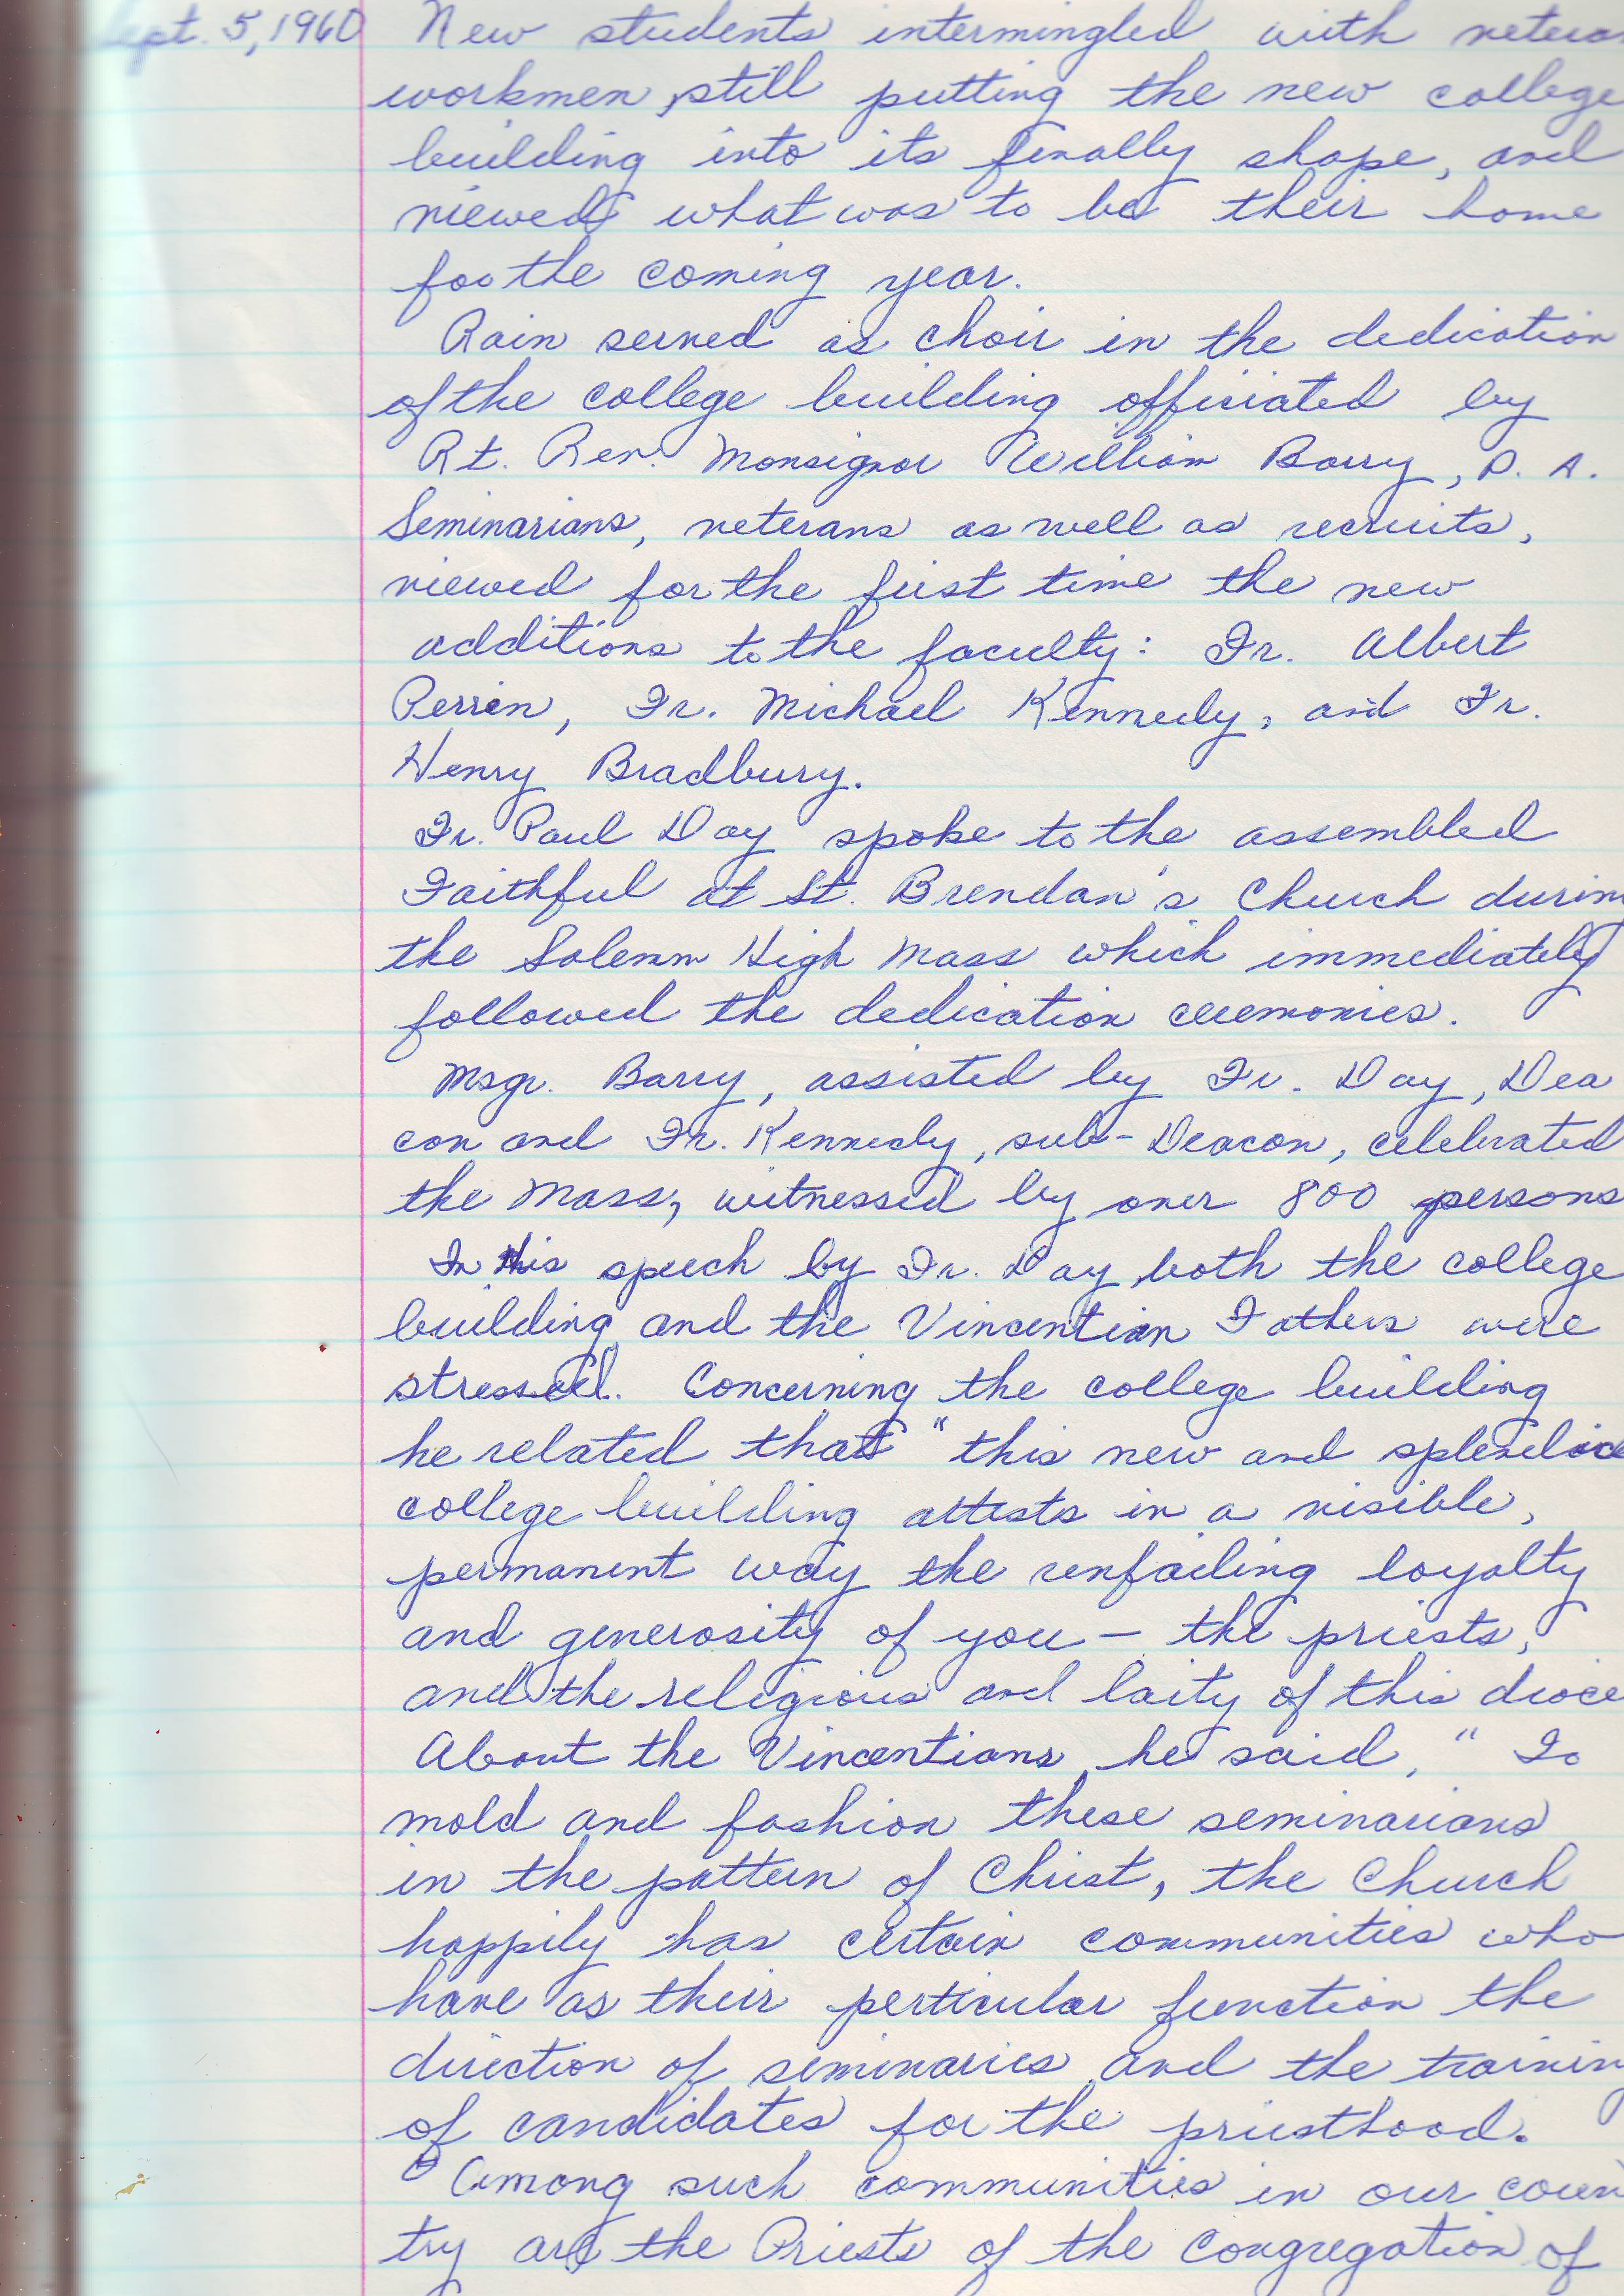 Sept. 5, 1960 New students intermingled with vetera
workmen, still putting the new college
building into its finally shape, and
viewed what was to be their home
for the coming year.
Rain served as choir in the dedication
of the college building officiated by
Rt. Rev. Monsignor William Barry, P. A.
Seminarians, veterans as well as recruits,
viewed for the first time the new
additions to the faculty: Fr. Albert
Perrin, Fr. Michael Kennedy, and Fr.
Henry Bradbury.
Fr. Paul Day spoke to the assembled
Faithful at St. Brendan's Church durin
the Solemn High Mass which immediately
followed the dedication ceremonies.
Msgr. Barry, assisted by Fr. Day, Dea
con and Fr. Kennedy, sub-Deacon, celebrated
the Mass, witnessed by over 800 persons
In this speech by Fr. Day both the college
building and the Vincentian Fathers were
stressed. Concerning the college building
he related that "this new and splendid
college building attests in a visible,
permanent way the unfailing loyalty
and generosity of you - the priests,
and the religious and laity of this dioce
About the Vincentians, he said, "To
mold and fashion these seminarians
in the pattern of Christ, the Church
happily has certain communities who
have as their perticular function the
direction of seminaries and the trainin
of candidates for the priesthood.
"Among such communities in our coun
try are the Priests of the Congregation of